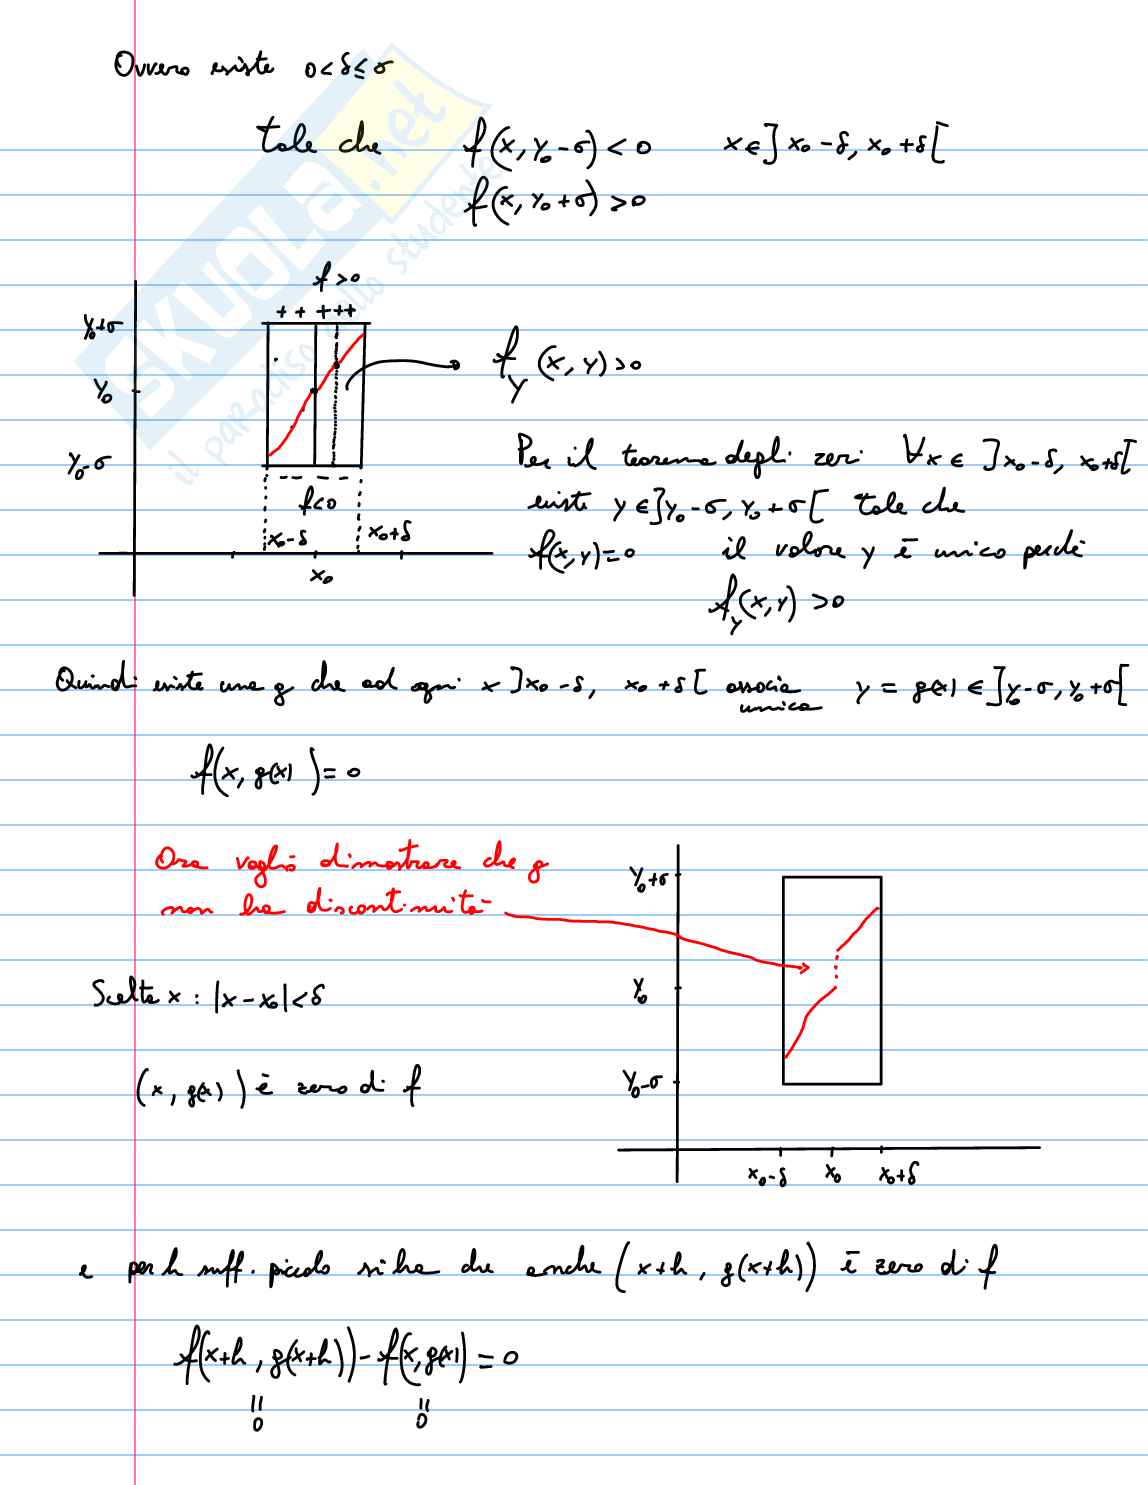 Ovvero esiste 0<δ≤σ
tale che f(x, y₀-σ) < 0 x∈]x₀-δ, x₀+δ[
f(x, y₀+σ) > 0
f > 0
+ + + + +
y₀+σ
y₀
y₀-σ
f_y (x, y) > 0
- - - -
f<0
x₀-δ
x₀+δ
x₀
Per il teorema degli zeri ∀x ∈ ]x₀-δ, x₀+δ[
esiste y ∈ ]y₀-σ, y₀+σ[ tale che
f(x,y)=0 il valore y è unico perché
f_y(x,y) > 0
Quindi esiste una g che ad ogni x ]x₀-δ, x₀+δ[ associa unica y = g(x) ∈ ]y₀-σ, y₀+σ[
f(x, g(x)) = 0
Ora voglio dimostrare che g
non ha discontinuità
y₀+σ
y₀
y₀-σ
x₀-δ x₀ x₀+δ
Scelta x : |x-x₀|<δ
(x, g(x)) è zero di f
e per h suff. piccolo si ha che anche (x+h, g(x+h)) è zero di f
f(x+h, g(x+h)) - f(x, g(x)) = 0
= 0 = 0
SKUOLA.net
il paradiso dello studente